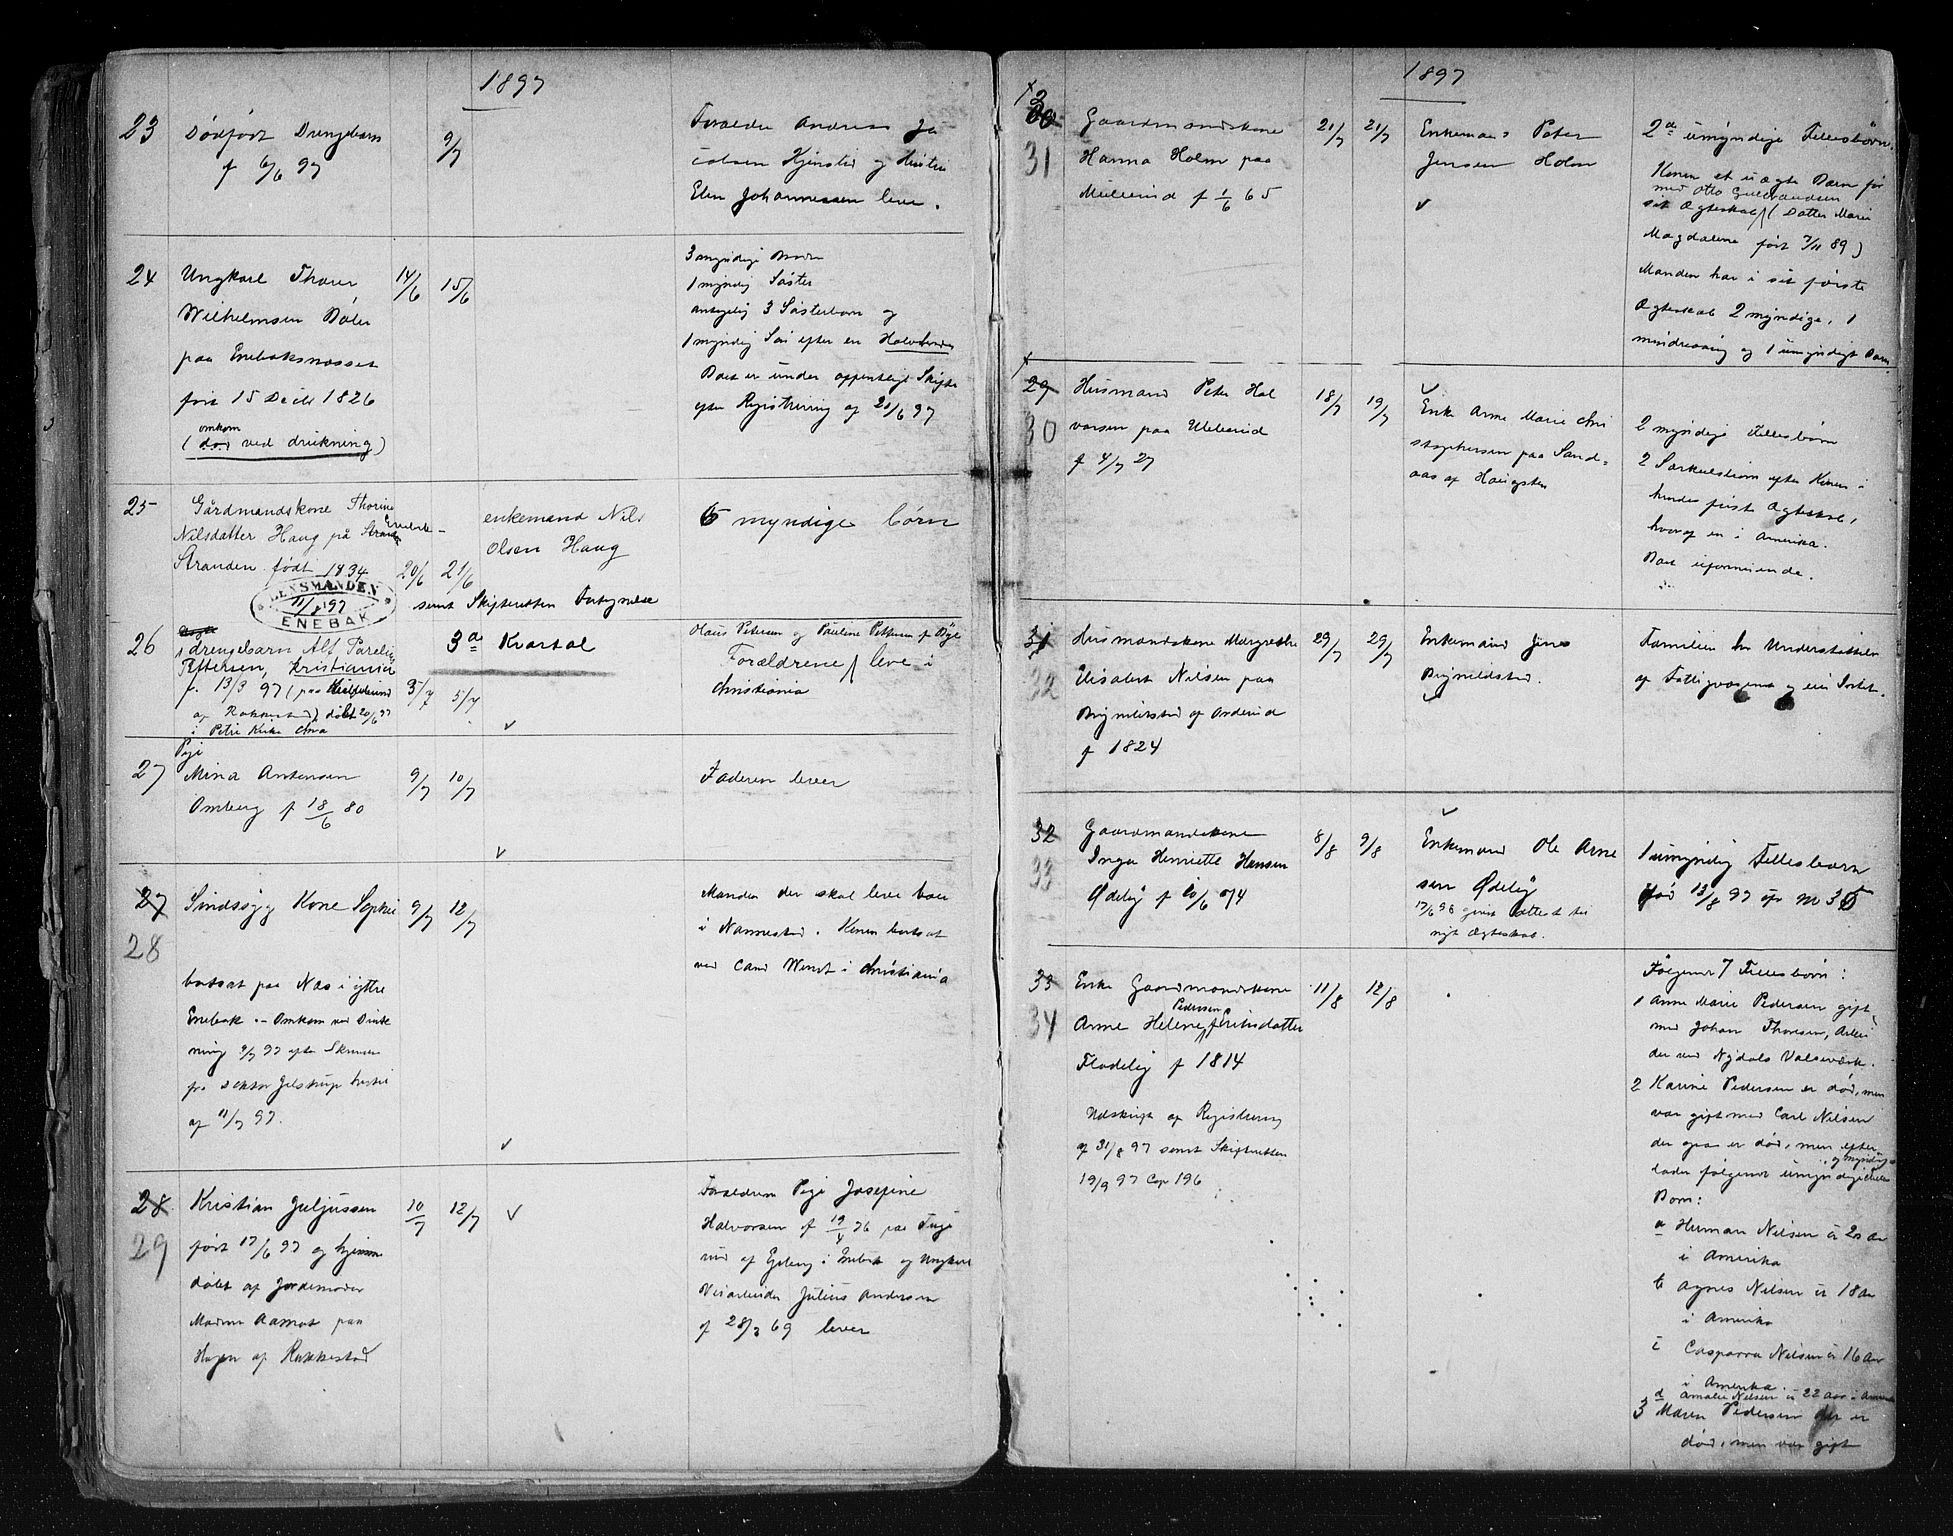 1897
23
Dødfødt Drengebarn
f 6/6 97
9/7
Forældre Andreas Ja
cobsen Kjenstid og Hustru
Elen Johannessen lever.
24
Ungkarl Thorer
Wilhelmsen Bøler
paa Enebaksnæsset
født 15 Decbr 1826
omkom
(død ved drukning)
14/6
15/6
3 myndige Brødre
1 myndig Søster
antagelig 3 Søsterbørn og
1 myndig Søn efter en Halvbroder
Boet er under offentligt Skifte
efter Registrering af 21/6 97
25
Gårdmandskone Thorine
Nilsdatter Haug på
Stranden født 1834
20/6
21/6
enkemand Nils
Olsen Haug
samt Skifteretten Fortegnelse
6 myndige børn
LENSMANDEN
11/8 97
ENEBAK
26
drengebarn Alf Parelius
Pettersen, Kristiania
f. 13/3 97 (paa
af Rakkestad) døbt 20/6 97
i Petri Kirke Chra
3die Kvartal
5/7
5/7
Hans Petersen og Pauline Pettersen f Bye
Forældrene leve i
Christiania
27
Pige
Mina Antensen
Omberg f 18/6 80
9/7
10/7
Faderen lever
27
28
Sindssyg Kone Sophie
9/7
12/7
bortsat paa Næs i ytre
Enebak. – Omkom ved Druk
ning 9/7 97 efter Skrivelse
fra doktor Jelstrup
af 11/7 97.
Manden der skal leve boer
i Nannestad. Konen bortsat
ved Cand Wenst i Christiania
28
29
Kristian Juljussen
født 17/6 97 og hjemme
døbt af Jordemoder
Maren Aamot paa
Hagen af Rakkestad
10/7
12/7
Forældrene Pige Josefine
Halvorsen f 19/4 76 paa
rud af Egeberg i Enebak og Ungkarl
Veiarbeider Julius Andersen
f 28/3 69 lever
1897
30
31
Gaardmandskone
Hanna Holm paa
Mellerud f 1/6 65
21/7
21/7
Enkemand Peter
Jensen Holm
2de umyndige Fællesbørn.
Konen et uægte Barn før
med Otto Guldbrandsen
sit Ægteskab (Datter Marie
Magdalene født 7/11 89)
Manden har i sit første
Ægteskab 2 myndige, 1
mindreaarig og 1 umyndigt Barn
29
30
Husmand Peter Hal
vorsen paa Ulleerud
f 4/7 27
18/7
19/7
Enke Anne Marie Chri
stophersen paa Sand=
aas af Haugsten
2 myndige Fællesbørn
2 Særkulsbørn efter Konen i
hendes første Ægteskab,
hvoraf en i Amerika.
Boet uformuende.
31
32
Husmandskone Margrethe
Elisabet Nilsen paa
Brynildstad af Arderud
f 1824
29/7
29/7
Enkemand Jens
Brynildstad.
Familien har Understøttelse
af Fattigvæsenet og ein Sortet.
32
33
Gaardmandskone
Inga Henriette Hansen
Ødelig f 20/6 74
8/8
9/8
Enkemand Ole Arne
sen Ødelig
17/6 98 givet Attest til
nyt Ægteskab.
1 umyndig Fællesbarn
død 13/8 97 cfr No 35
33
34
Enke Gaardmandskone
Pedersen
Anne Helene Jørinsdatter
Fladelig f 1814
Udskrift af Registrering
af 31/8 97 samt Skifteretten
19/9 97 Cop 196
11/8
12/8
Følgende 7 Fællesbørn:
1 Anne Marie Pedersen gift
med Johan Thoresen, Arbei
der ved Nydals Valseværk.
2 Karine Pedersen er død, men
var gift med Carl Nilsen
der ogsaa er død, men efter
og myndige
lader følgende umyndige
Børn:
a Herman Nilsen er 20 Aar
i Amerika
b Agnes Nilsen er 18 Aar
i Amerika
c Casparra Nilsen er 16 Aar
i Amerika.
d Amalie Nilsen er 22 Aar i Amerika
3 Maren Pedersen der er
død, men var gift